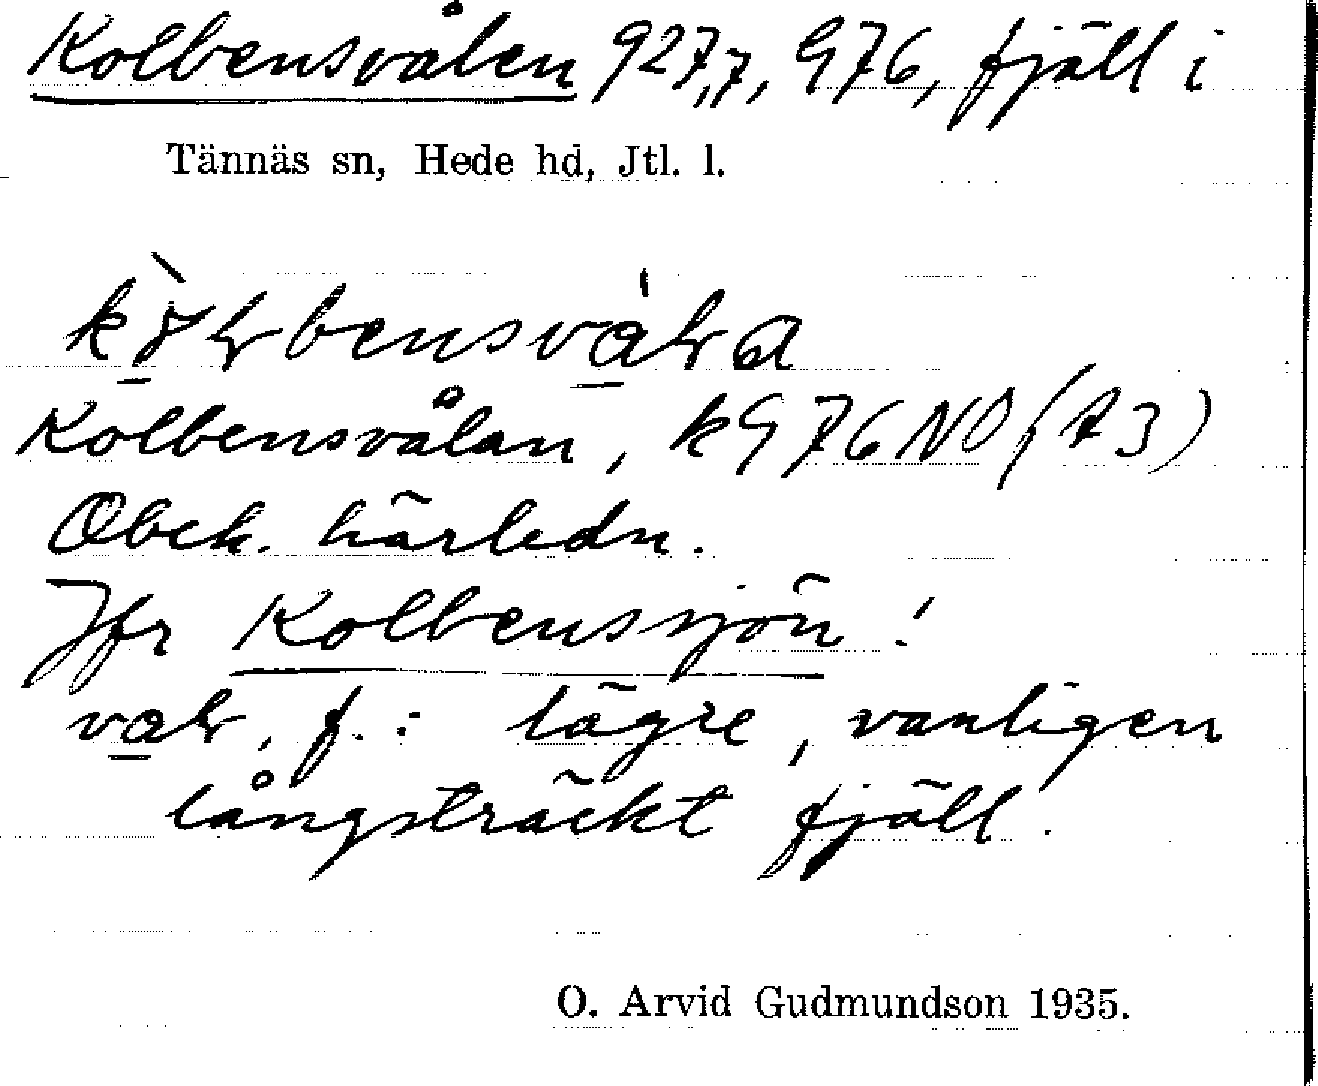 Kolbensvålen 927,7, G76, fjäll i
Tännäs sn, Hede hd, Jtl. l.
Kolbensvålan, kG76NO (A3)
Obek. härledn.
Jfr Kolbenssjön!
f.: lägre, vanligen
långsträckt fjäll.
O. Arvid Gudmundson 1935.